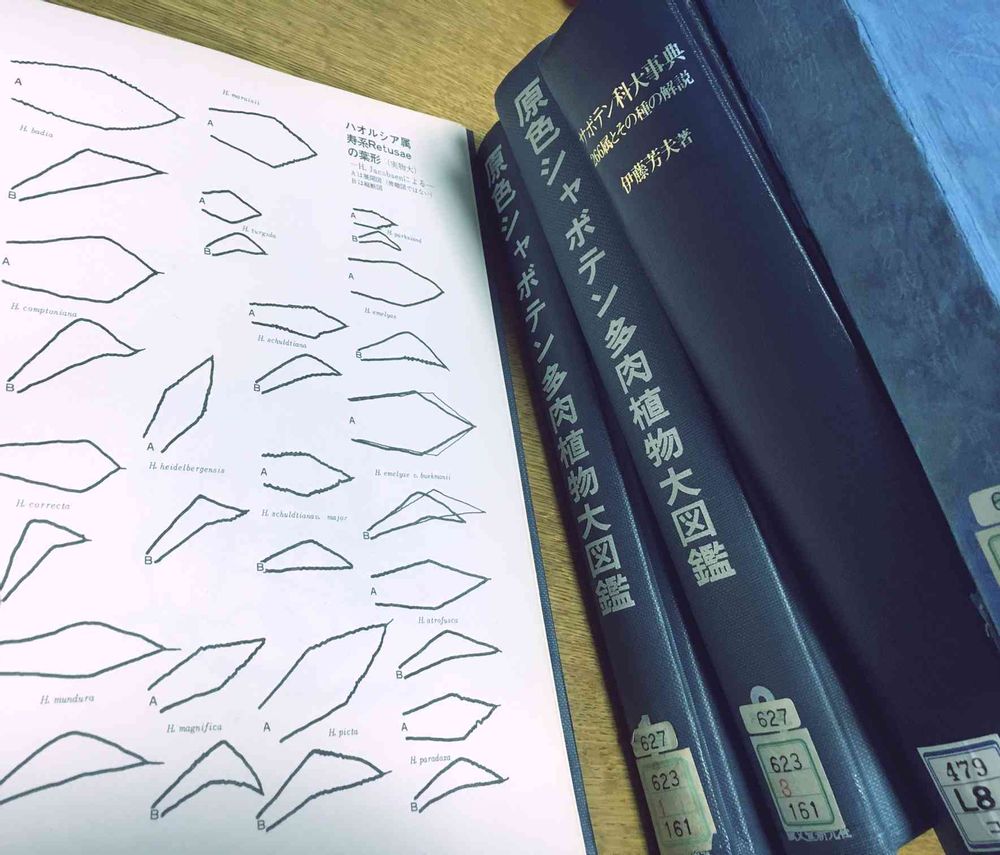 ハオルシア属
寿系Retusae
の葉形(実物大)
—H. Jacobsenによる—
Aは展開図
Bは縦断図
A
H. badia
B
A
H. maraisii
A
H. turgida
B
A
H. parksiana
B
A
H. comptoniana
B
A
H. emelyae
B
A
H. schuldtiana
B
A
H. heidelbergensis
B
A
H. emelyae v. buekmanii
B
A
H. schuldtianav. major
B
H. correcta
A
H. atrofusca
B
H. mundura
A
H. magnifica
B
A
H. picta
B
A
H. paradoxa
B
原色シャボテン多肉植物大図鑑
627
623
1
161
原色シャボテン多肉植物大図鑑
627
623
8
161
サボテン科大事典
266属とその種の解説
伊藤芳夫著
479
L8